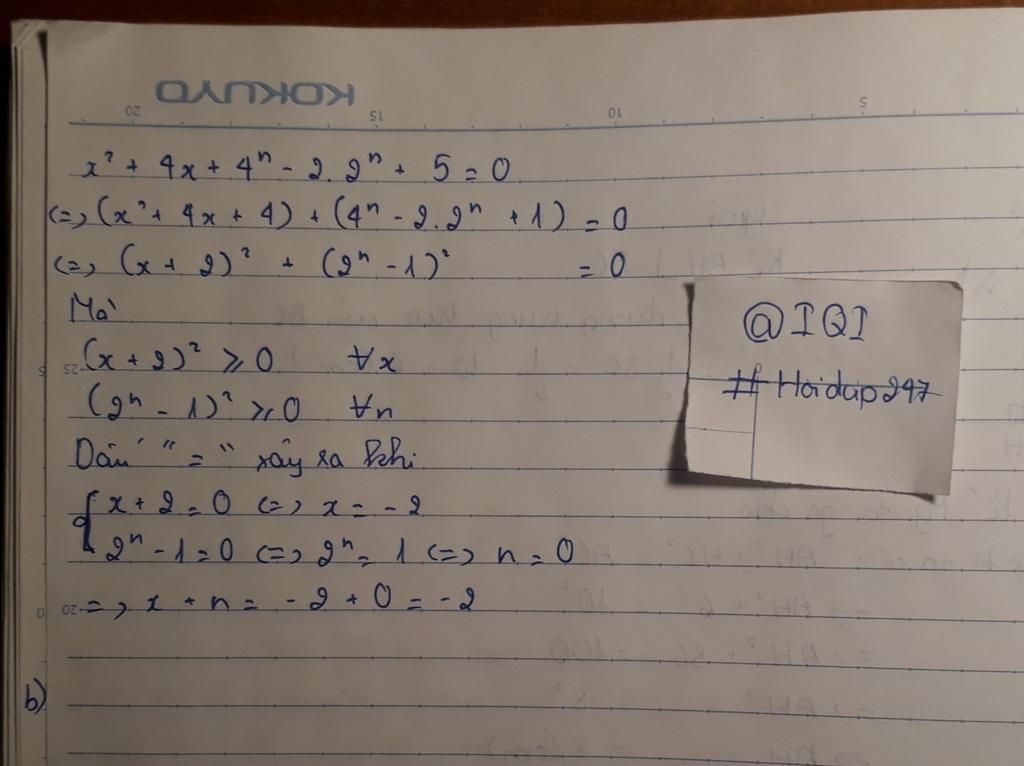 KOKUYO
20 15 10 5
x² + 4x + 4ⁿ - 2.2ⁿ + 5 = 0
<=> (x² + 4x + 4) + (4ⁿ - 2.2ⁿ + 1) = 0
<=> (x + 2)² + (2ⁿ - 1)² = 0
Mà
(x + 2)² ⩾ 0 ∀x
(2ⁿ - 1)² ⩾ 0 ∀n
Dấu " = " xảy ra khi
{ x + 2 = 0 <=> x = -2
2ⁿ - 1 = 0 <=> 2ⁿ = 1 <=> n = 0
=> x + n = -2 + 0 = -2
b)
@IQI
# Hoidap247
25
20